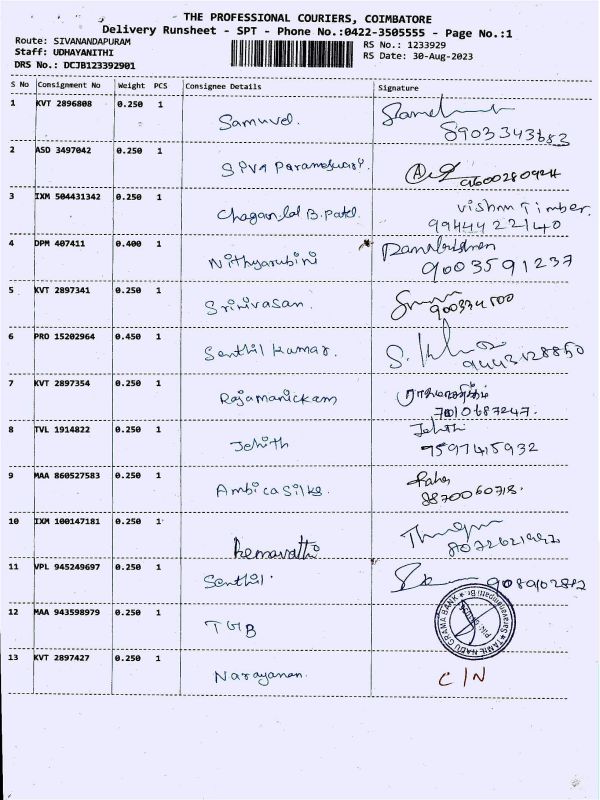 THE PROFESSIONAL COURIERS, COIMBATORE
Delivery Runsheet - SPT - Phone No.:0422-3505555 - Page No.:1
Route: SIVANANDAPURAM
RS No.: 1233929
Staff: UDHAYANITHI
RS Date: 30-Aug-2023
DRS No.: DCJB123392901
S No Consignment No Weight PCS Consignee Details Signature
1 KVT 2896808 0.250 1
Samuvel.
8903343683
2 ASD 3497042 0.250 1
SPVA Parameswari.
9600280924
3 IXM 504431342 0.250 1
Chaganlal B. Patel. Vishnu Timber.
9944422140
4 DPM 407411 0.400 1
Nithyarubini
9003591237
5 KVT 2897341 0.250 1
Srinivasan.
6 PRO 15202964 0.450 1
Senthil Kumar.
9443128850
7 KVT 2897354 0.250 1
Rajamanickam
7010687247.
8 TVL 1914822 0.250 1
Jehith
Jehith
7597415932
9 MAA 860527583 0.250 1
Ambica Silks.
8870060718.
10 IXM 100147181 0.250 1
Hemavathi
11 VPL 945249697 0.250 1
Senthil.
12 MAA 943598979 0.250 1
TGB
TAMIL NADU GRAMA BANK
13 KVT 2897427 0.250 1
Narayanan.
C/N